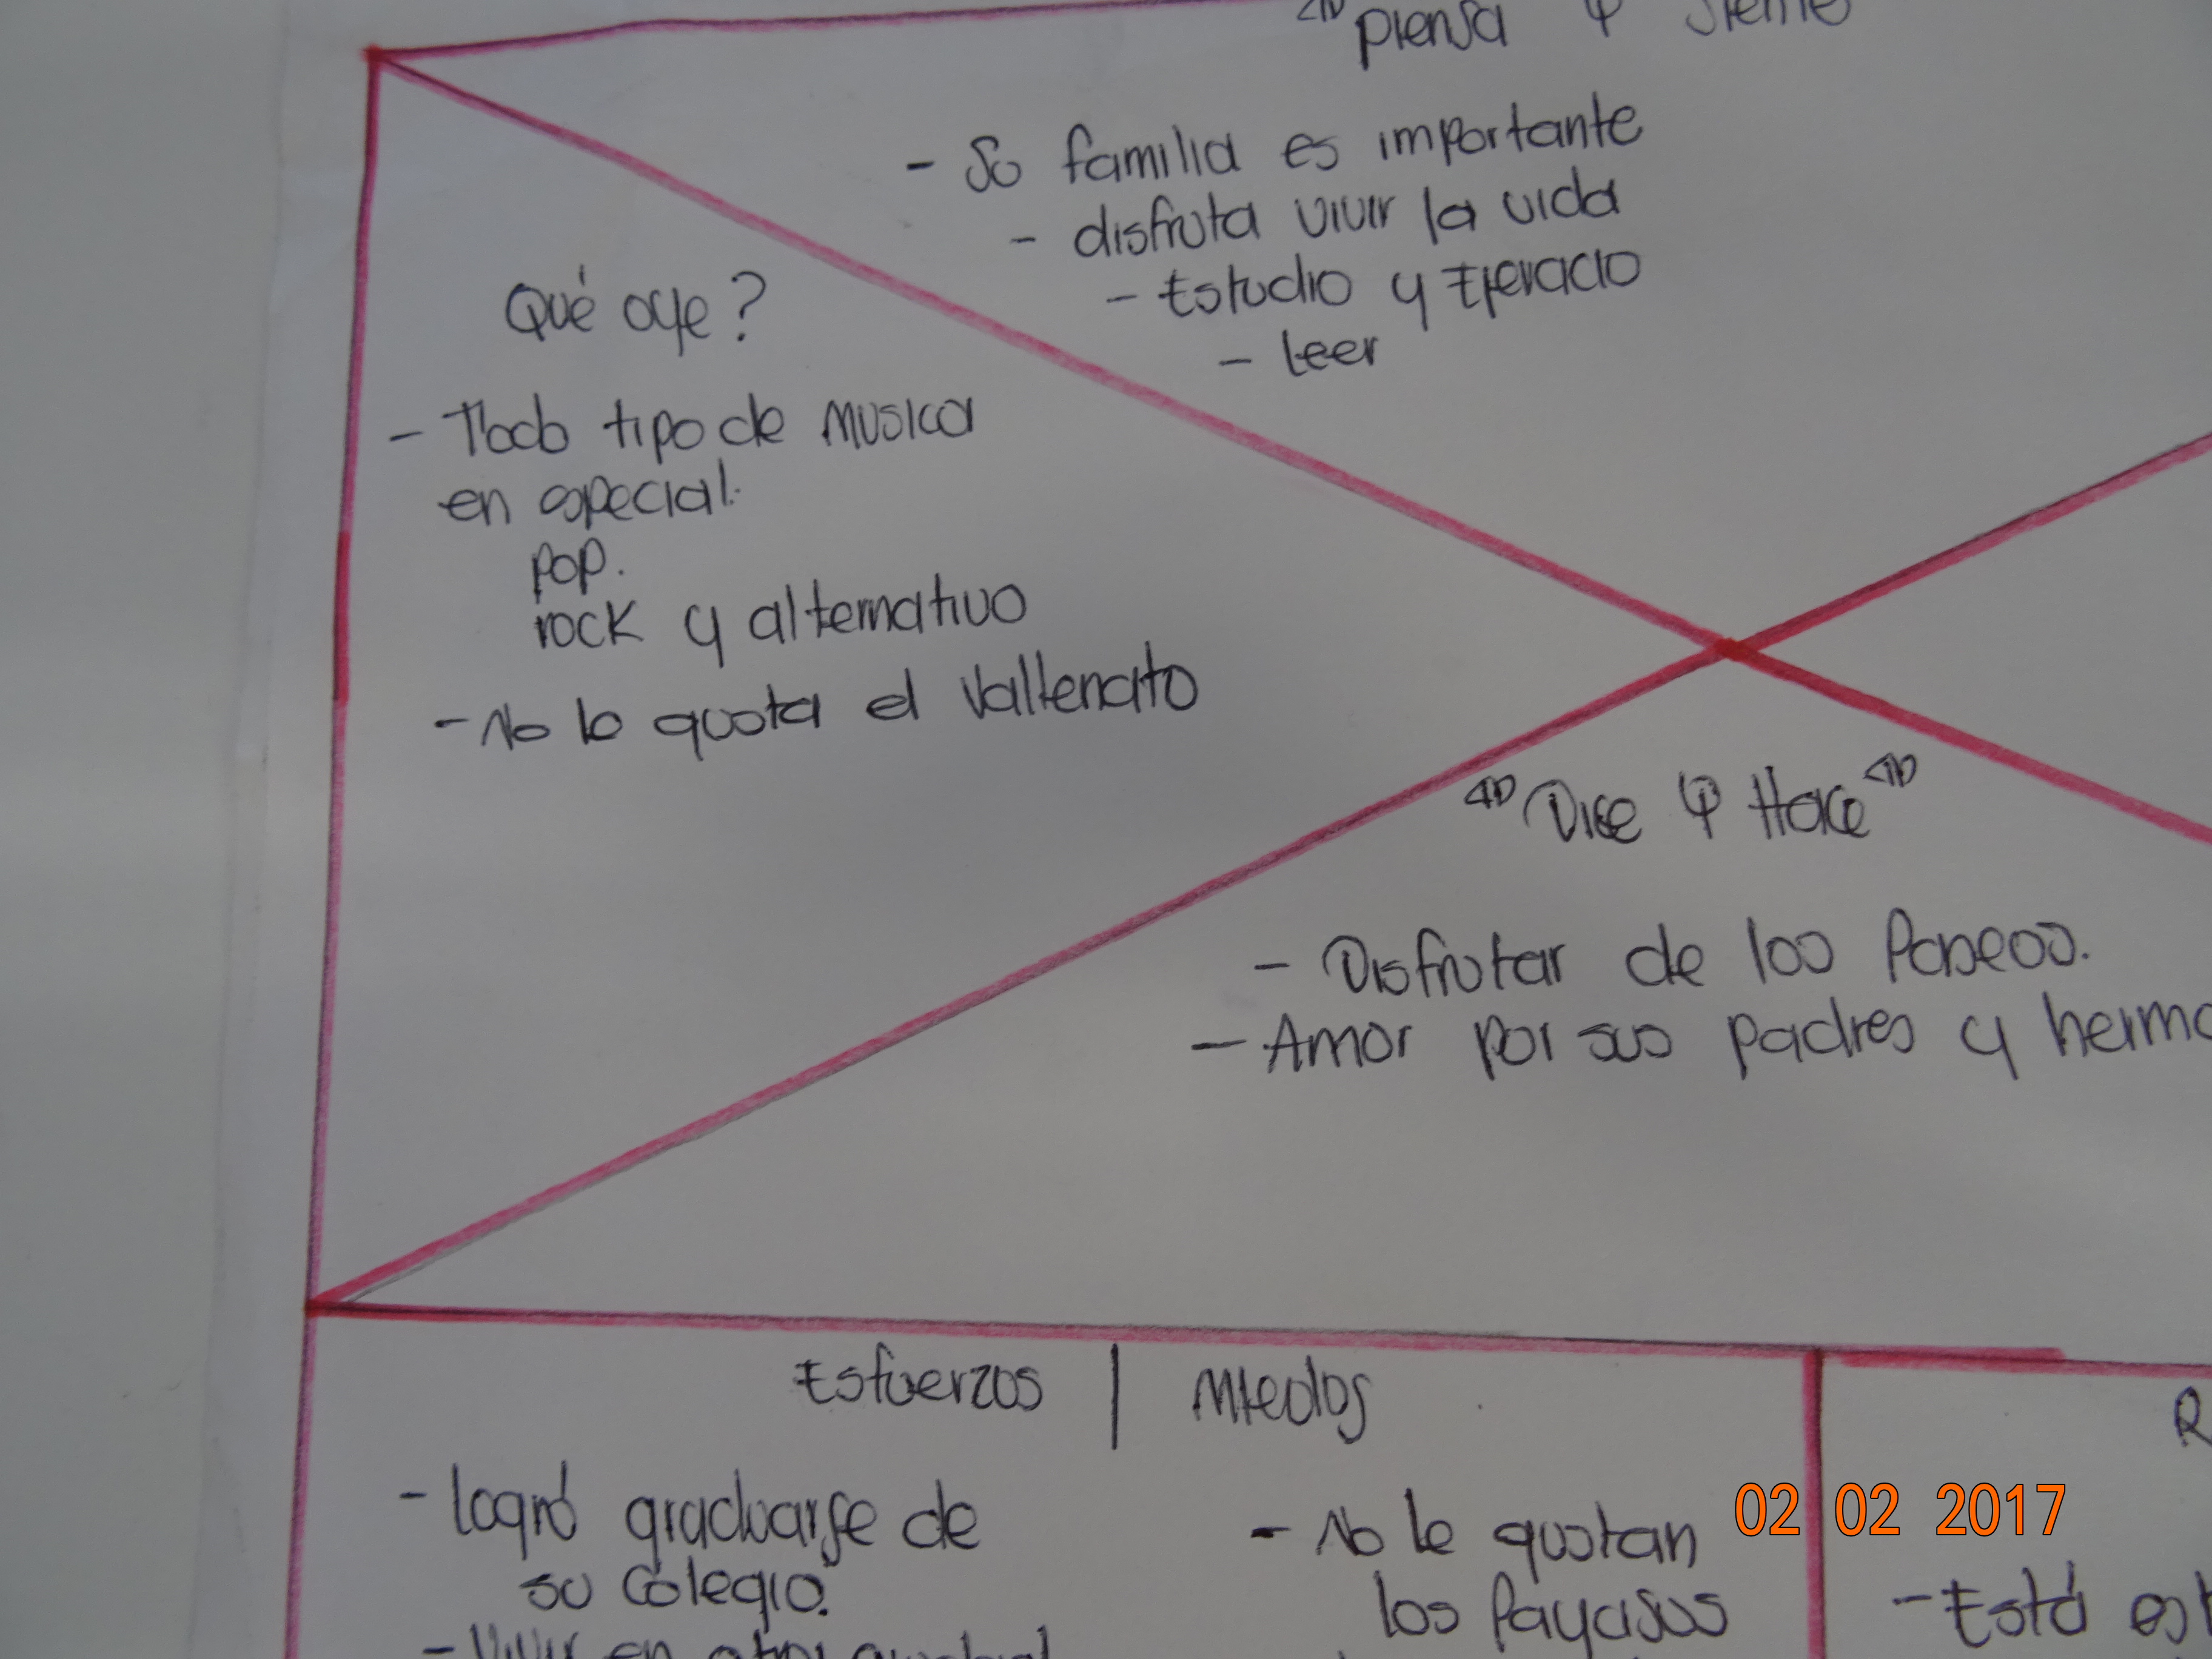 piensa y siente
- Su familia es importante
- disfruta vivir la vida
- Estudio y Ejercicio
- Leer
Qué oye?
- Todo tipo de Musica
en especial:
pop.
rock y alternativo
- No le gusta el Vallenato
Dice y Hace
- Disfrutar de los Paseos.
- Amor por sus padres y herma
Esfuerzos | Miedos
- logró graduarse de
su Colegio.
- Vivir en otra
- No le gustan
los Payasos
R
- Está es
02 02 2017